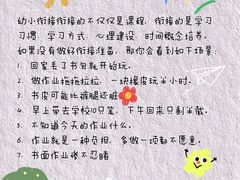 幼小衔接衔接的不仅仅是课程，衔接的是学习
习惯，学习方式，心理建设，时间概念培养。
如果没有做好衔接准备，那你会看到如下场景：
1. 回家丢了书包就开始玩。
2. 做作业拖拖拉拉，一块橡皮玩半小时。
3. 书皮可能比裤腿还脏
4. 早上带去学校10只笔，下午回来只剩半截。
5. 不知道今天的作业什么。
6. 作业就是一种负担，多做一项都不愿意。
7. 书面作业惨不忍睹